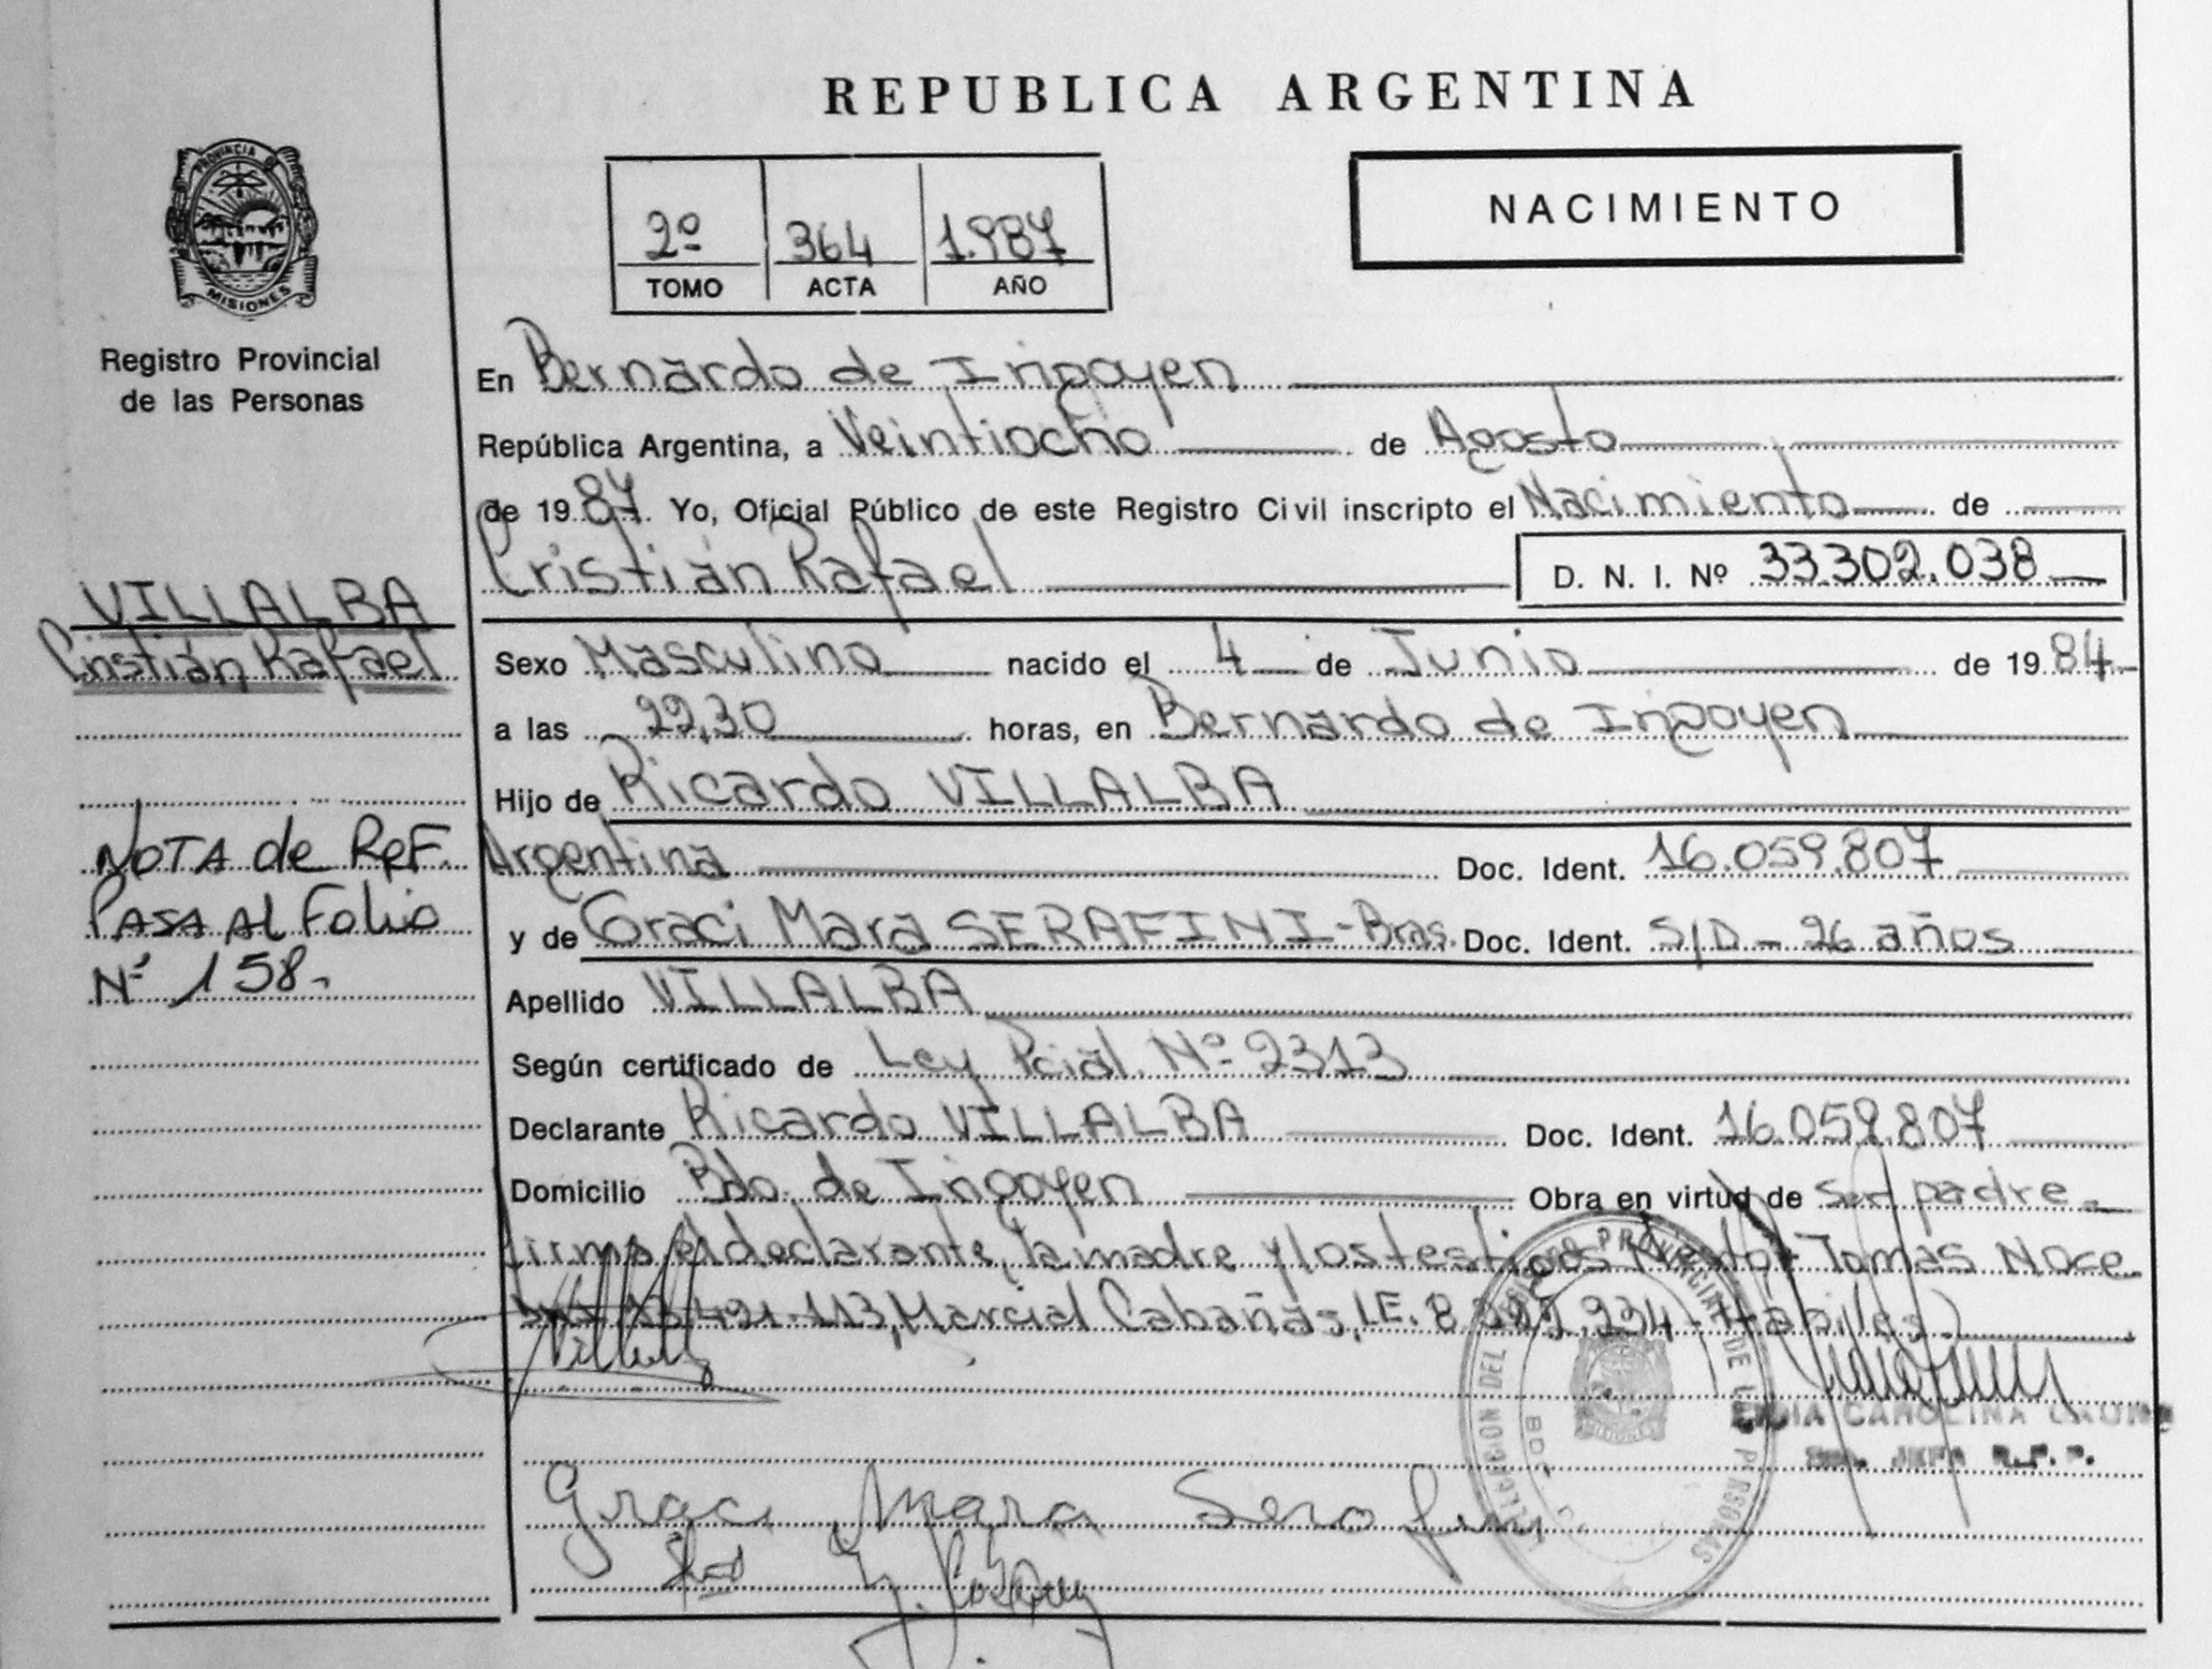 REPUBLICA ARGENTINA
PROVINCIA DE
MISIONES
Registro Provincial
de las Personas
2º 364 1.987
TOMO ACTA AÑO
NACIMIENTO
En Bernardo de Irigoyen
República Argentina, a Veintiocho de Agosto
de 1987 Yo, Oficial Público de este Registro Civil inscripto el Nacimiento de
Cristián Rafael D. N. I. Nº 33.302.038
VILLALBA
Cristián Rafael
Sexo Masculino nacido el 4 de Junio de 1984
a las 22,30 horas, en Bernardo de Irigoyen
Hijo de Ricardo VILLALBA
Argentina Doc. Ident. 16.059.807
y de Graci Mara SERAFINI-Bras. Doc. Ident. S/D - 26 años
NOTA de REF.
PASA Al Folio
Nº 158.
Apellido VILLALBA
Según certificado de Ley Pcial. Nº 2313
Declarante Ricardo VILLALBA Doc. Ident. 16.059.807
Domicilio Bdo. de Irigoyen Obra en virtud de ser padre
firma el declarante, la madre y los testigos Tomás Noce
421.113, Marcial Cabañas, I.E. 8 .234 - Hábiles)
DELEGACION DEL REGISTRO PROVINCIAL DE LAS PERSONAS
CAROLINA
JEFA R.P.P.
Graci Mara Serafini